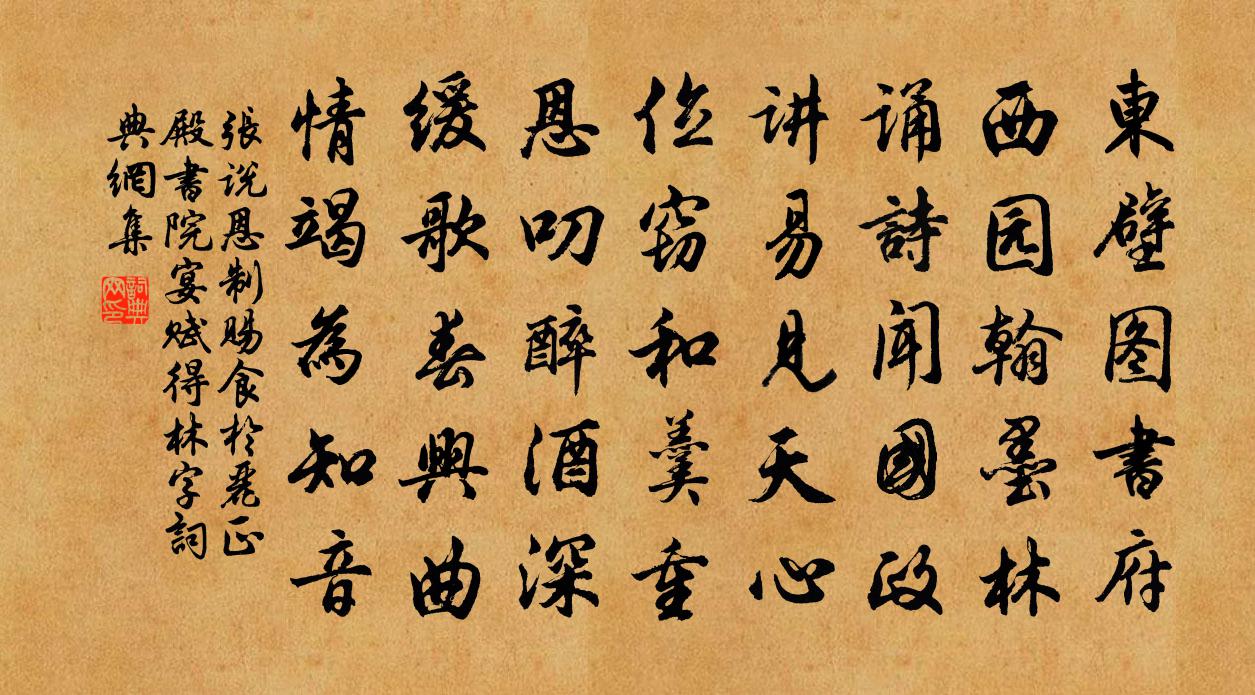 東壁图書府
西园翰墨林
诵詩聞國政
讲易見天心
位竊和羹重
恩叨醉酒深
緩歌春興曲
情竭為知音
張说恩制賜食於麗正
殿書院宴赋得林字詞
典網集
詞典网印